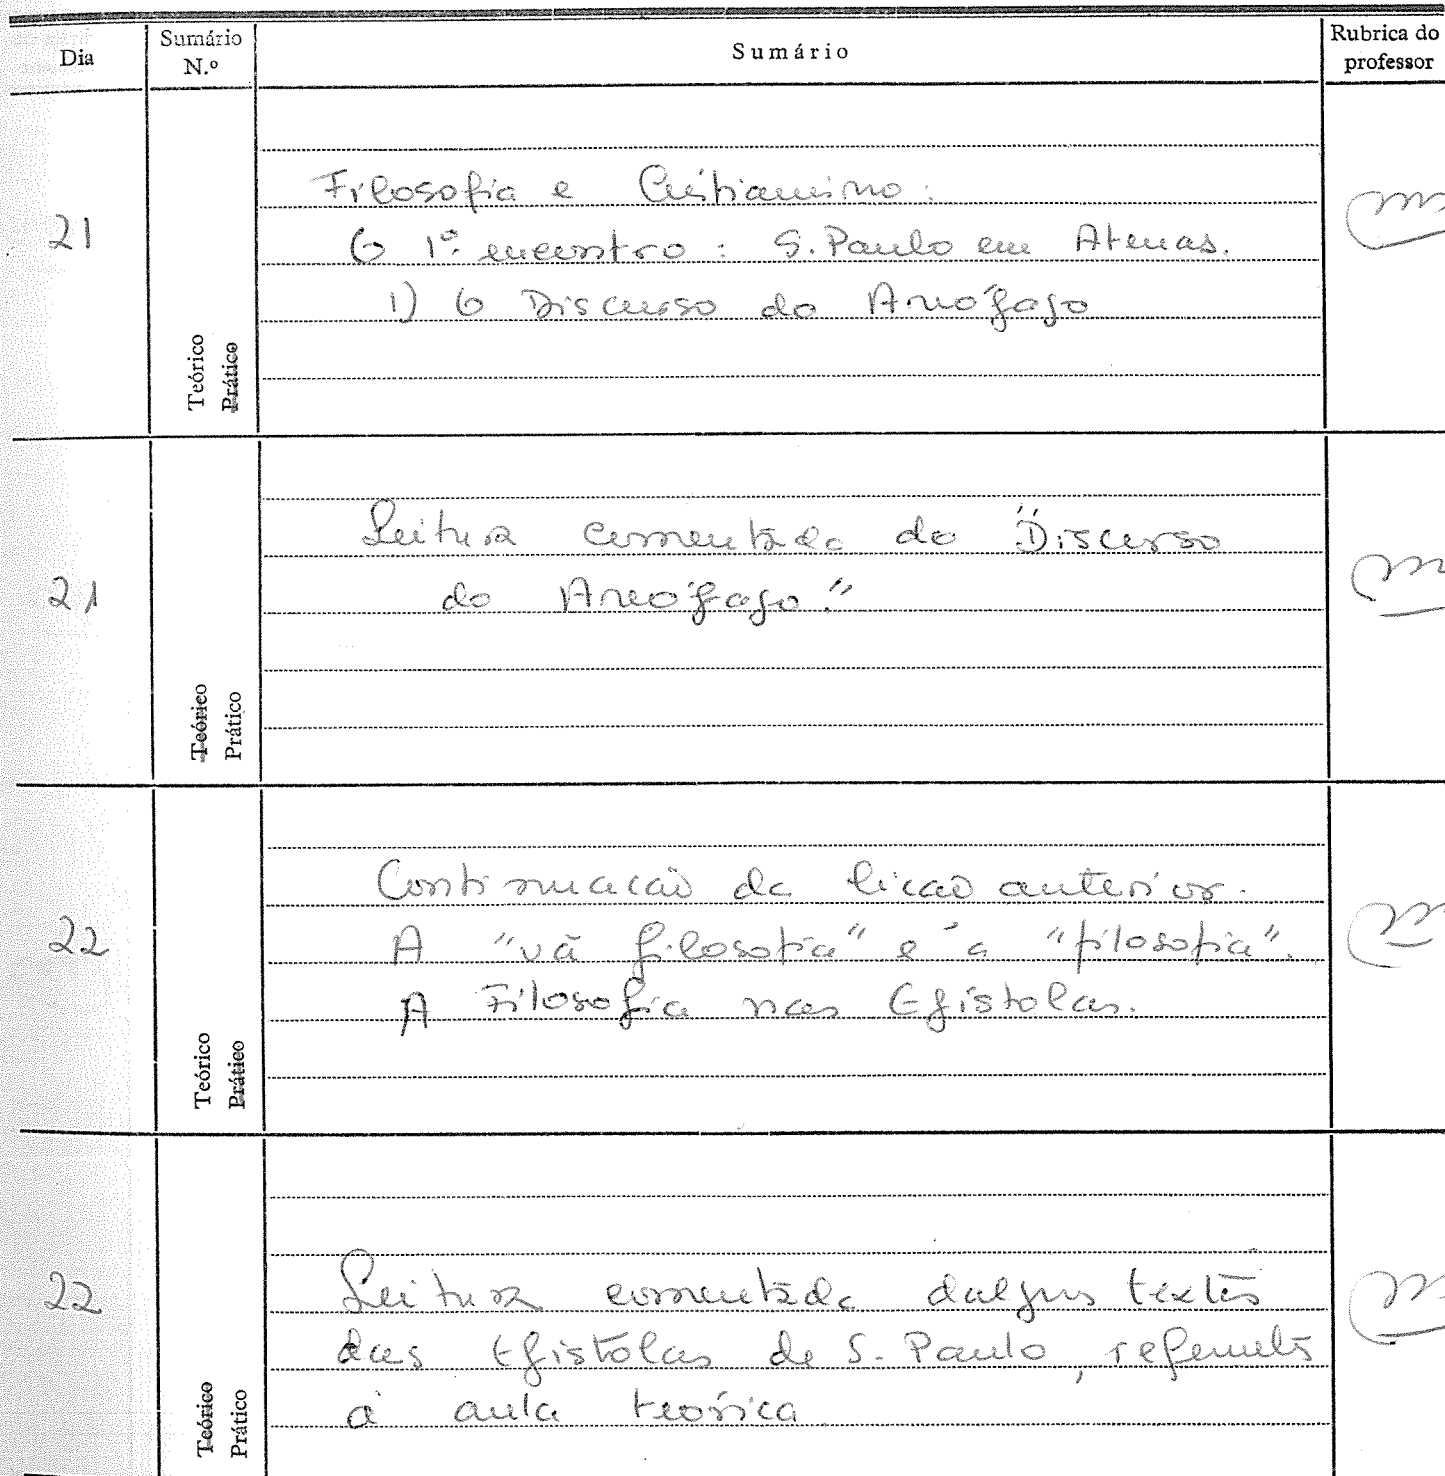 Dia
Sumário
N.º
Sumário
Rubrica do
professor
21
Teórico
Prático
Filosofia e Cristianismo:
O 1º encontro: S. Paulo em Atenas.
1) O Discurso do Areópago
21
Teórico
Prático
Leitura comentada do "Discurso
do Areópago."
22
Teórico
Prático
Continuação da lição anterior.
A "vã filosofia" e a "filosofia".
A Filosofia nas Epístolas.
22
Teórico
Prático
Leitura comentada dalguns textos
das Epístolas de S. Paulo, referentes
à aula teórica